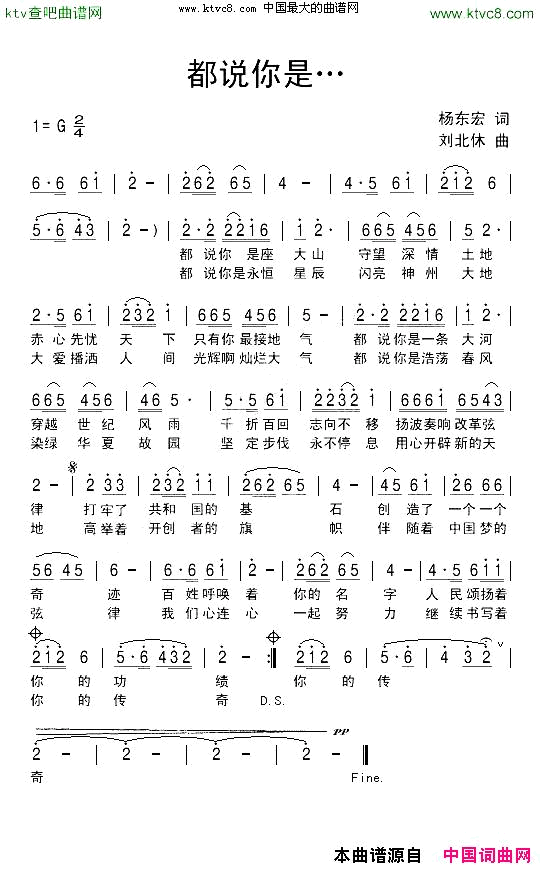 ktv查吧曲谱网 www.ktvc8.com 中国最大的曲谱网 www.ktvc8.com
都说你是…
1=G 2/4
杨东宏 词
刘北休 曲
6·6 61 | 2 - | 262 65 | 4 - | 4·5 61 | 212 6 |
5·6 43 | 2 -) | 2·2 2216 | 1 2· | 665 456 | 5 2· |
都说你 是座 大山 守望 深情 土地
都说你是永恒 星辰 闪亮 神州 大地
2·5 61 | 232 1 | 665 456 | 5 - | 2·2 2216 | 1 2· |
赤心先忧 天 下 只有你 最接地 气 都说你是一条 大河
大爱播洒 人 间 光辉啊 灿烂大 气 都说你是浩荡 春风
665 456 | 6 5· | 5·5 61 | 2232 1 | 6461 6543 |
穿越 世纪 风雨 千折百回 志向不 移 扬波奏响改革弦
染绿 华夏 故园 坚定步伐 永不停 息 用心开辟新的天
2 - | 2 33 | 232 11 | 262 65 | 4 - | 45 61 | 26 66 |
律 打牢了 共和 国的 基 石 创造了 一个一个
地 高举着 开创 者的 旗 帜 伴随着 中国梦的
56 45 | 6 - | 6·6 61 | 2 - | 262 65 | 4 - | 4·5 611 |
奇 迹 百姓呼唤 着 你的 名 字 人民颂扬着
弦 律 我们心连 心 一起 努 力 继续书写着
212 6 | 5·6 432 | 2 - :| 212 6 | 5·6 | 4 3 2 |
你 的 功 绩 你 的 传
你 的 传 奇 D.S.
pp
2 - | 2 - | 2 - | 2 - |
奇 Fine.
本曲谱源自 中国词曲网